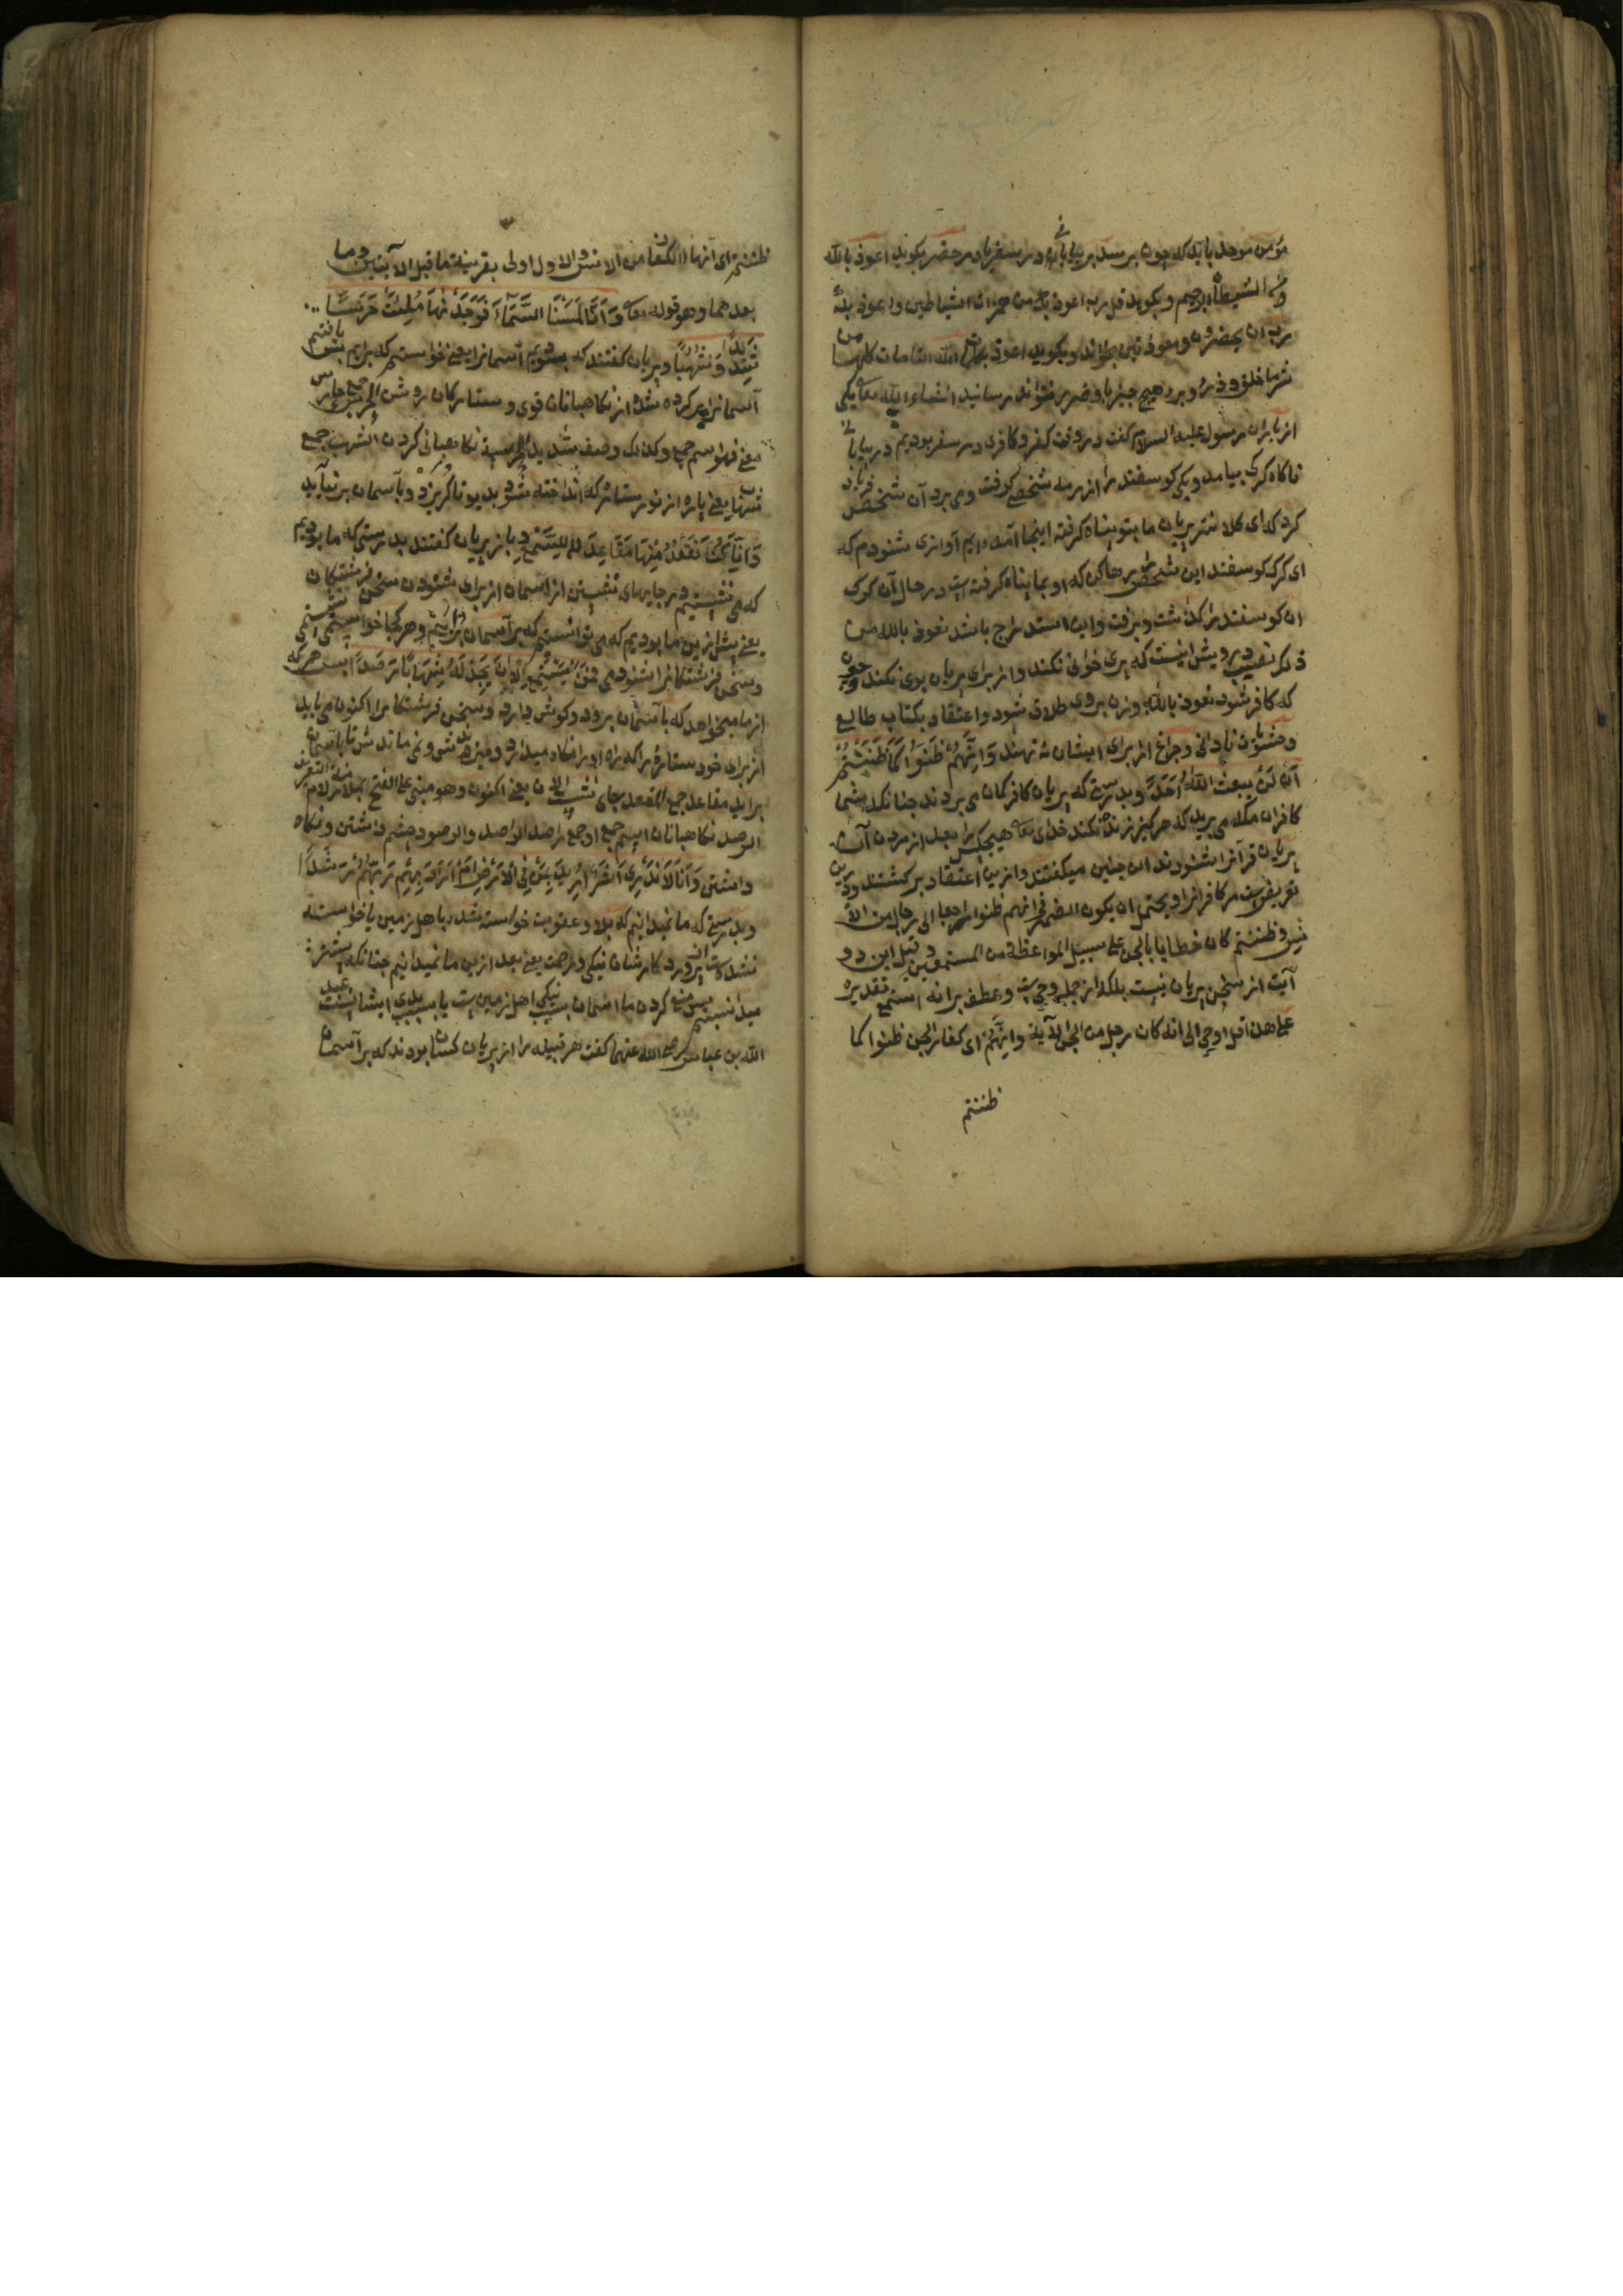 مؤمن موحد باید که چون برسد بر بیابانی در سفر یا در حضر بکوید اعوذ بالله
من الشیطان الرجیم و بکوید قل رب اعوذ بک من همزات الشیاطین و اعوذ بک
رب ان یحضرون و معوذتین بخواند و بکوید اعوذ بکلمات الله التامات کلها من
شر ما خلق و ذرء و برء هیچ چیز با و ضرر نتواند رسانید انشاء الله تعه یکی
از یاران رسول علیه السلام کفت در وقت کفر و کافری در سفر بودیم در بیابانی
ناکاه کرک بیامد و یکی کوسفند را از رمه شخصی کرفت و می برد آن شخص فریاد
کرد که ای کلانتر پریان ما بتو پناه کرفته اینجا آمده ایم آوازی شنودم که
ای کرک کوسفند این شخص را رها کن که او بما پناه کرفته است در حال آن کرک
ان کوسفند را کذاشت و برفت و این استدراج باشد نعوذ بالله من
ذلک نصیب درویش اینست که پری خوانی نکند و از برای پریان بوی نکند و چون
که کافر شود نعوذ بالله و زن بروی طلاق شود و اعتقاد بکتاب طالع
و چراغ از برای ایشان نه نهند وَاَنَّهُمْ ظَنُّوا كَمَا ظَنَنْتُمْ
اَنْ لَنْ یبعث اللّهُ اَحَدًا و بدرستی که پریان کافر کمان می بردند چنانکه شما
کافران مکه می برید که هرکیز زنده نکند خدای تعه هیچکس را بعد از مردن آن
پریان قرآنرا شنودند این چنین میکفتند و ازین اعتقاد برکشتند و درین
تعریض است مر کافرانرا و یحتمل ان یکون الضمیر فی انهم ظنوا راجعا الی رجال من الا
نس و ظننتم کان خطابا بالجن علی سبیل المواعظة من المستمعین و قیل این دو
آیت از سخن پریان نیست بلکه از جمله وحی است و عطف بر انه استمع تقدیره
علی هذا قل اوحی الی انه کان رجل من الجن الآیة وانهم ای کفار الجن ظنوا کما
ظننتم
ظننتم ای انها الکفار من الانس والاول اولی بقرینة ما قبل الآیتین وما
بعدهما وهو قوله تعه وَاَنَّا لَمَسْنَا السَّمَاءَ فَوَجَدْنٰهَا مُلِئَتْ حَرَسًا
شَدِیْدًا وَشُهُبًا و پریان کفتند که بسودیم آسمانرا یعنی خواستیم که برایم پس یافتیم
آسمانرا پر کرده شده از نکاهبانان قوی و ستارکان روشن الحرس جمع حارس
معنی فهو اسم جمع و کذلک وصف بشدید الحراسة نکاهبانی کردن الشهب جمع
شهاب یعنی پاره از نور ستاره که انداخته شود بدیو تا کریزد و بآسمان بر نیاید
وَاَنَّا كُنَّا نَقْعُدُ مِنْهَا مَقَاعِدَ لِلسَّمْعِ و باز پریان کفتند بدرستی که ما بودیم
که می نشستیم در جایهای نشستن از آسمان از برای شنودن سخن فرشتکان
یعنی پیش ازین ما بودیم که می توانستیم که بر آسمان برائیم و هر کجا خواستیمی نشستیمی
و سخن فرشتکانرا شنودمی فَمَنْ یَسْتَمِعِ الْاٰنَ یَجِدْ لَهُ شِهَابًا رَصَدًا پس هر که
از ما میخواهد که بآسمان برود و کوش دارد و سخن فرشتکانرا اکنون می یابد
از برای خود ستارۀ را که راه او را نکاه میدارد و میزندش و نمی ماندش تا بآسمان
براید مقاعد جمع المقعد بجای نشست الان یعنی اکنون وهو مبنی علی الفتح لام التعریف
الرصد نکاهبانان اسم جمع او جمع راصد الواصد والرصود چشم داشتن و نکاه
داشتن وَاَنَّا لَا نَدْرِیْ اَشَرٌّ اُرِیْدَ بِمَنْ فِی الْاَرْضِ اَمْ اَرَادَ بِهِمْ رَبُّهُمْ رَشَدًا
و بدرستی که ما نمیدانیم که بلا و عقوبت خواسته شد باهل زمین یا خواسته
شده است پروردکارشان نیکی و رحمت یعنی بعد ازین ما نمیدانیم چنانکه پیشتر
میدانستیم پس منع کردن ما از آسمان بسبب نیکی اهل زمین است یا بسبب بدی ایشانست عبد
الله بن عباس رضی الله عنهما کفت هر قبیله را از پریان کسان بودند که بر آسمان